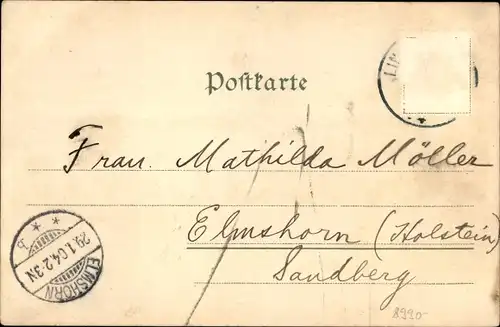 Postkarte
Frau. Mathilda Möller
Elmshorn (Holstein)
Sandberg
ELMSHORN
29.1.04.2-3N
8990-